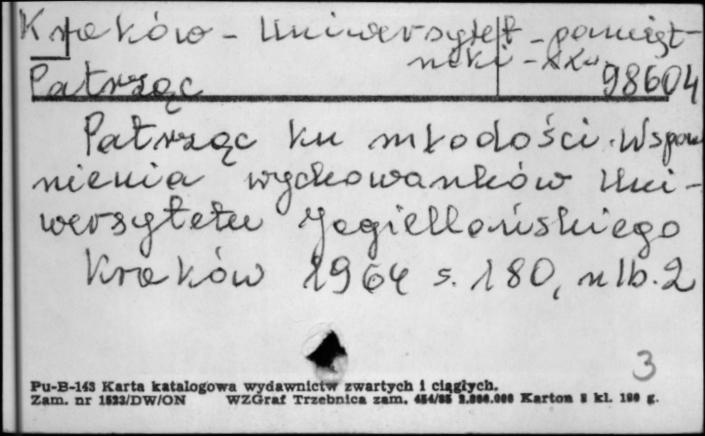 Kraków - Uniwersytet - pamięt-
niki - XX w.
98604
Patrząc
Patrząc ku młodości. Wspom
nienia wychowanków Uni-
wersytetu Jagiellońskiego
Kraków 1964 s. 180, nlb. 2
3
Pu-B-143 Karta katalogowa wydawnictw zwartych i ciągłych.
Zam. nr 1523/DW/ON WZGraf Trzebnica zam. Karton kl. g.